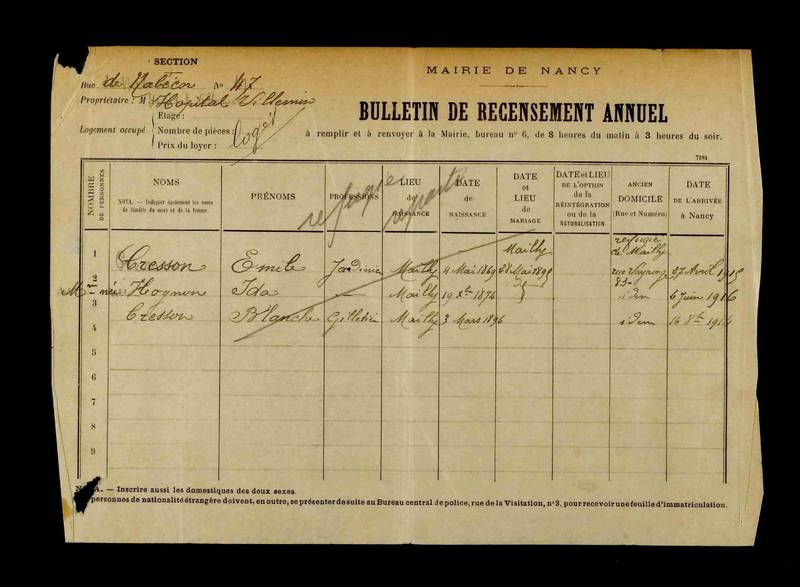 SECTION
Rue de Nabécor No 47
Propriétaire : M Hopital Villemin
Logement occupé
Etage :
Nombre de pièces :
Prix du loyer :
logés
MAIRIE DE NANCY
BULLETIN DE RECENSEMENT ANNUEL
à remplir et à renvoyer à la Mairie, bureau no 6, de 8 heures du matin à 3 heures du soir.
7184
NOMBRE DE PERSONNES
NOMS
NOTA. — Indiquer également les noms de famille du mari et de la femme.
PRÉNOMS
PROFESSIONS
LIEU de NAISSANCE
DATE de NAISSANCE
DATE et LIEU de MARIAGE
DATE et LIEU DE L'OPTION de la RÉINTÉGRATION ou de la NATURALISATION
ANCIEN DOMICILE (Rue et Numéro)
DATE DE L'ARRIVÉE à Nancy
refugie
1 Cresson Emile Jardinier Mailly 4 Mai 1869 Mailly refugié de Mailly 27 Avril 1915
2 Mme née Hognon Ida — Mailly 19 Xbre 1874 idem 6 Juin 1916
3 Cresson Blanche Mailly 3 Mars 1896 idem
4
5
6
7
8
9
NOTA. — Inscrire aussi les domestiques des deux sexes.
personnes de nationalité étrangère doivent, en outre, se présenter de suite au Bureau central de police, rue de la Visitation, no 3, pour recevoir une feuille d'immatriculation.